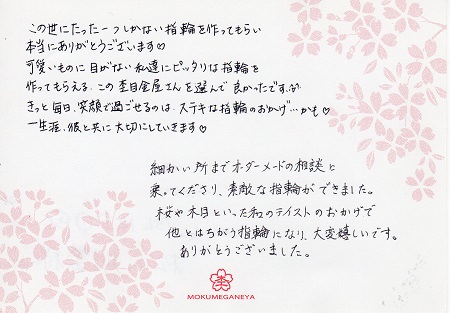 この世にたった一つしかない指輪を作ってもらい
本当にありがとうございます♡
可愛いものに目がない私達にピッタリな指輪を
作ってもらえる、この杢目金屋さんを選んで良かったですっ♪
きっと毎日、笑顔で過ごせるのは、ステキな指輪のおかげ…かも♡
一生涯、彼と共に大切にしていきます♡
細かい所までオーダーメードの相談に
乗ってくださり、素敵な指輪ができました。
桜や木目といった和のテイストのおかげで
他とはちがう指輪になり、大変嬉しいです。
ありがとうございました。
MOKUMEGANEYA